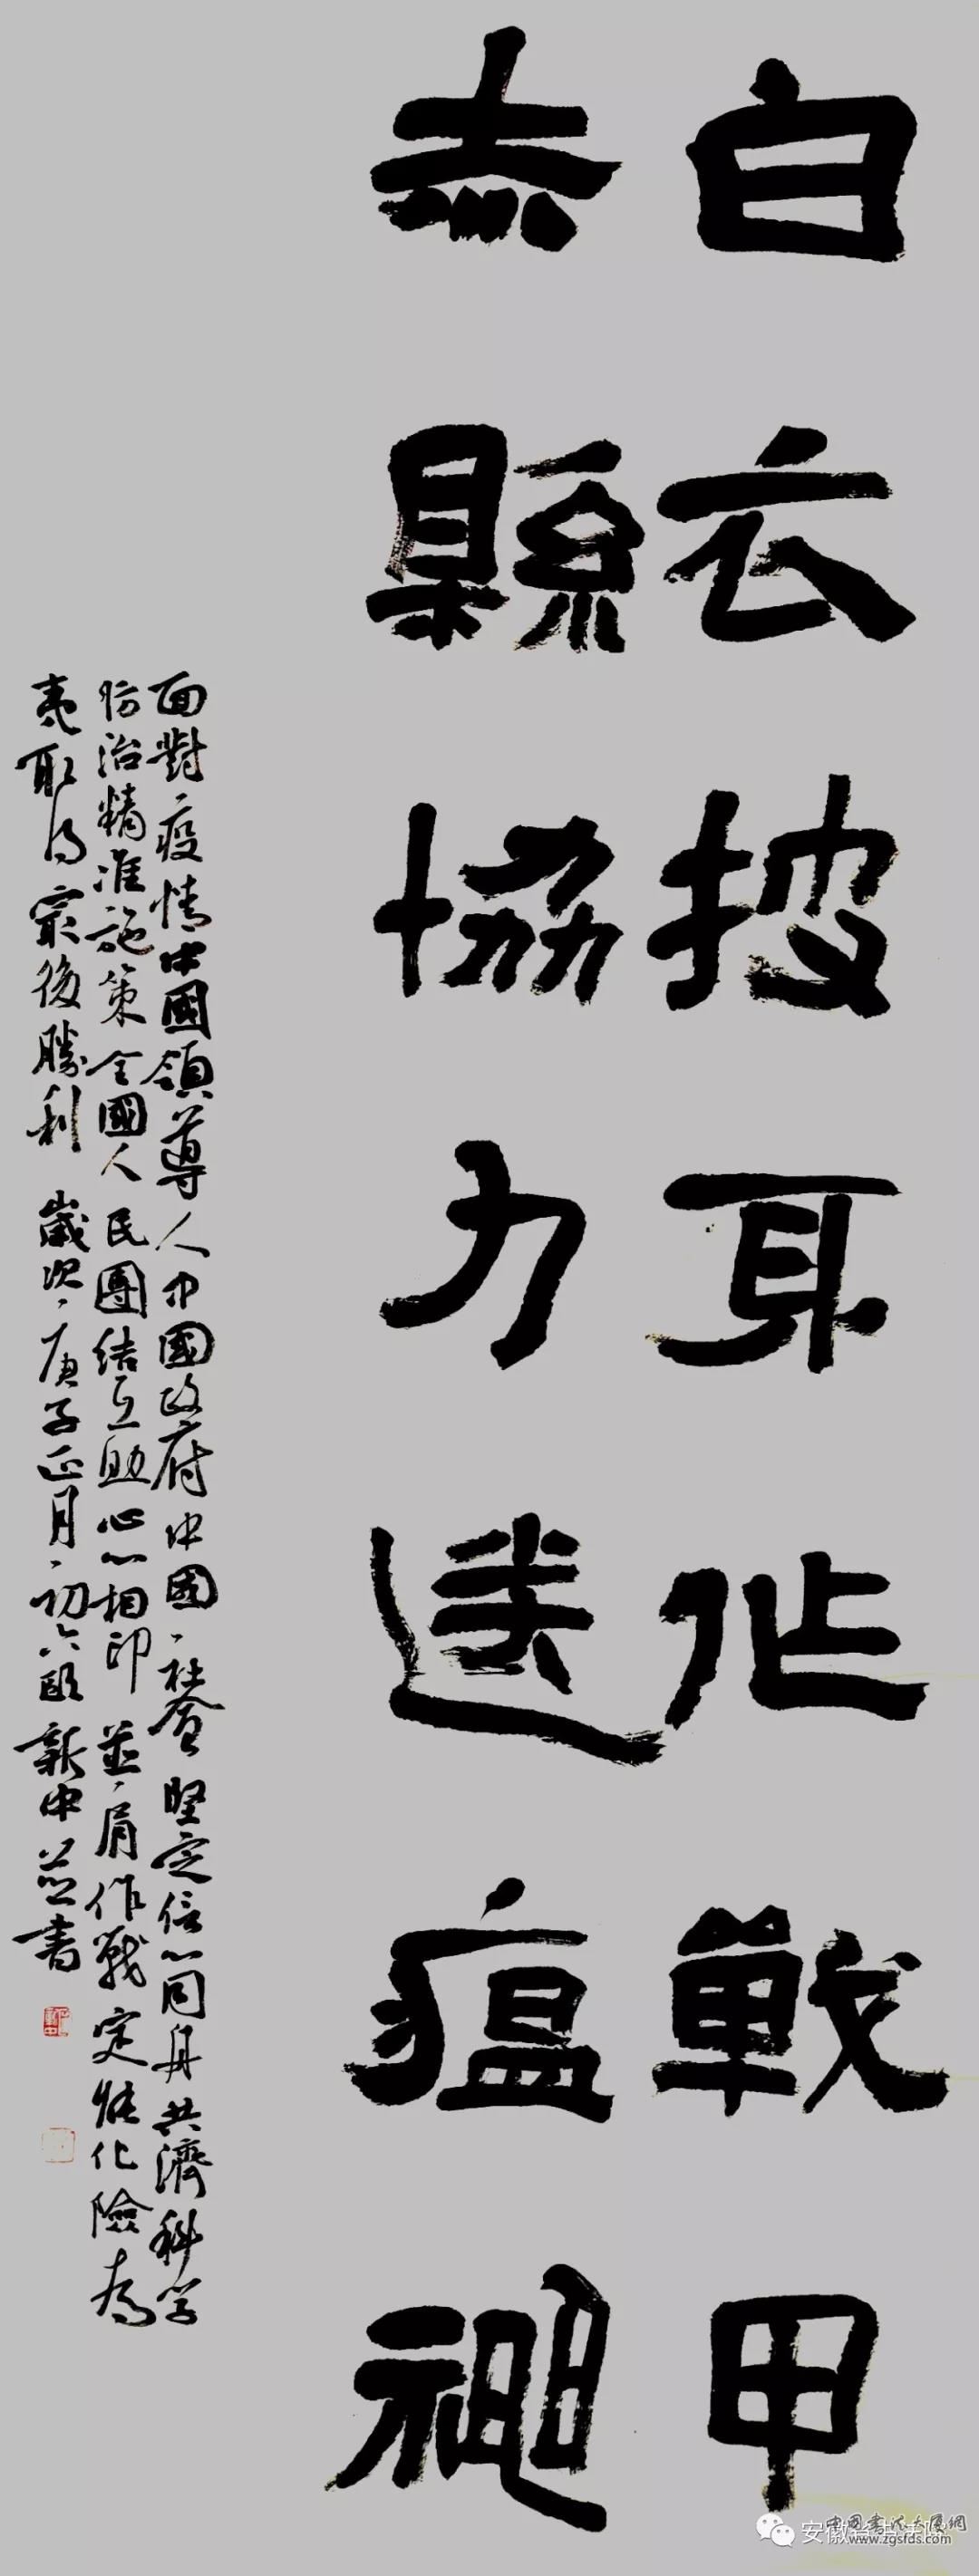 白衣披耳作戰甲
赤縣協力送瘟神
面對疫情中國領導人中國政府中國社會堅定信心同舟共濟科学
防治精准施策全國人民團结互助心心相印並肩作戰定能化險為
夷取得最後勝利 歲次庚子正月初六歐新中并書
中国书法大厦網
www.zgsfds.com